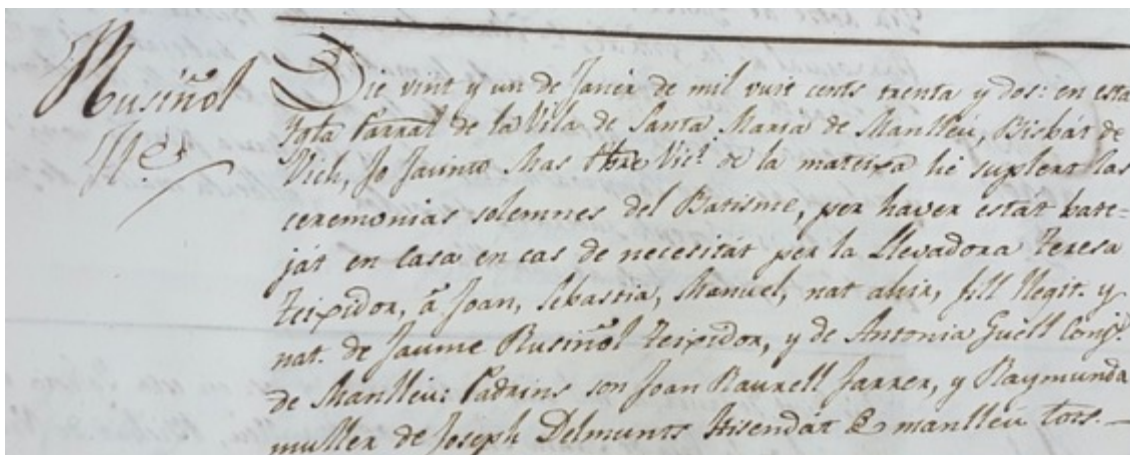 Rusiñol
Die vint y un de Janer de mil vuit cents trenta y dos: en esta
Igla Parral de la Vila de Santa Maria de Manlleu, Bisbát de
Vich, Jo Jacinto Mas Pbre Vicⁱ de la mateixa he suplert las
ceremonias solemnes del Batisme, per haver estat bate=
ját en Casa en cas de necesitát per la Llevadora Teresa
Teixidor, á Joan, Sebastia, Manuel, nat ahir, fill llegit. y
nat. de Jaume Rusiñol Teixidor, y de Antonia Guell Conjˢ.
de Manlleu: Padrins son Joan Baurell Farrer, y Raymunda
muller de Joseph Delmunts Hisendát de manlleu tots.—